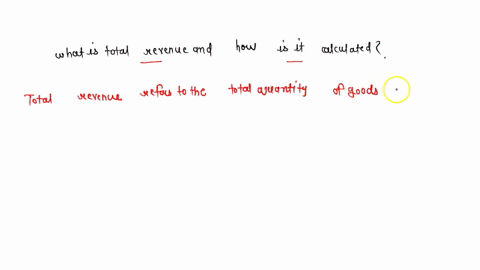 what is total revenue and how is it calculated?.
Total revenue refers to the total quantity of goods